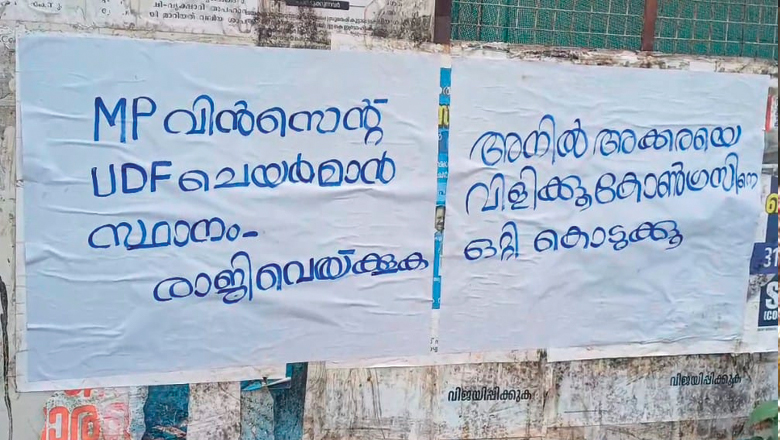 MP വിൻസെന്റ്
UDF ചെയർമാൻ
സ്ഥാനം-
രാജിവെയ്ക്കുക
അനിൽ അക്കരയെ
വിളിക്കൂ കോൺഗ്രസിനെ
ഒറ്റി കൊടുക്കൂ
വിജയിപ്പിക്കുക
വിജയിപ്പിക്കുക